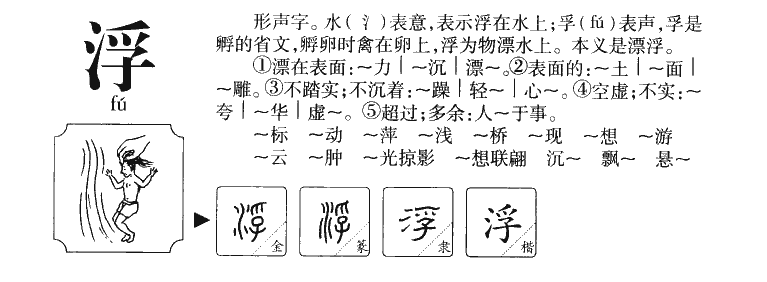 浮
fú
形声字。水(氵)表意,表示浮在水上;孚(fú)表声,孚是
孵的省文,孵卵时禽在卵上,浮为物漂水上。本义是漂浮。
①漂在表面:~力|~沉|漂~。②表面的:~土|~面|
~雕。③不踏实;不沉着:~躁|轻~|心~。④空虚;不实:~
夸|~华|虚~。⑤超过;多余:人~于事。
~标 ~动 ~萍 ~浅 ~桥 ~现 ~想 ~游
~云 ~肿 ~光掠影 ~想联翩 沉~ 飘~ 悬~
浮 金 浮 篆 浮 隶 浮 楷